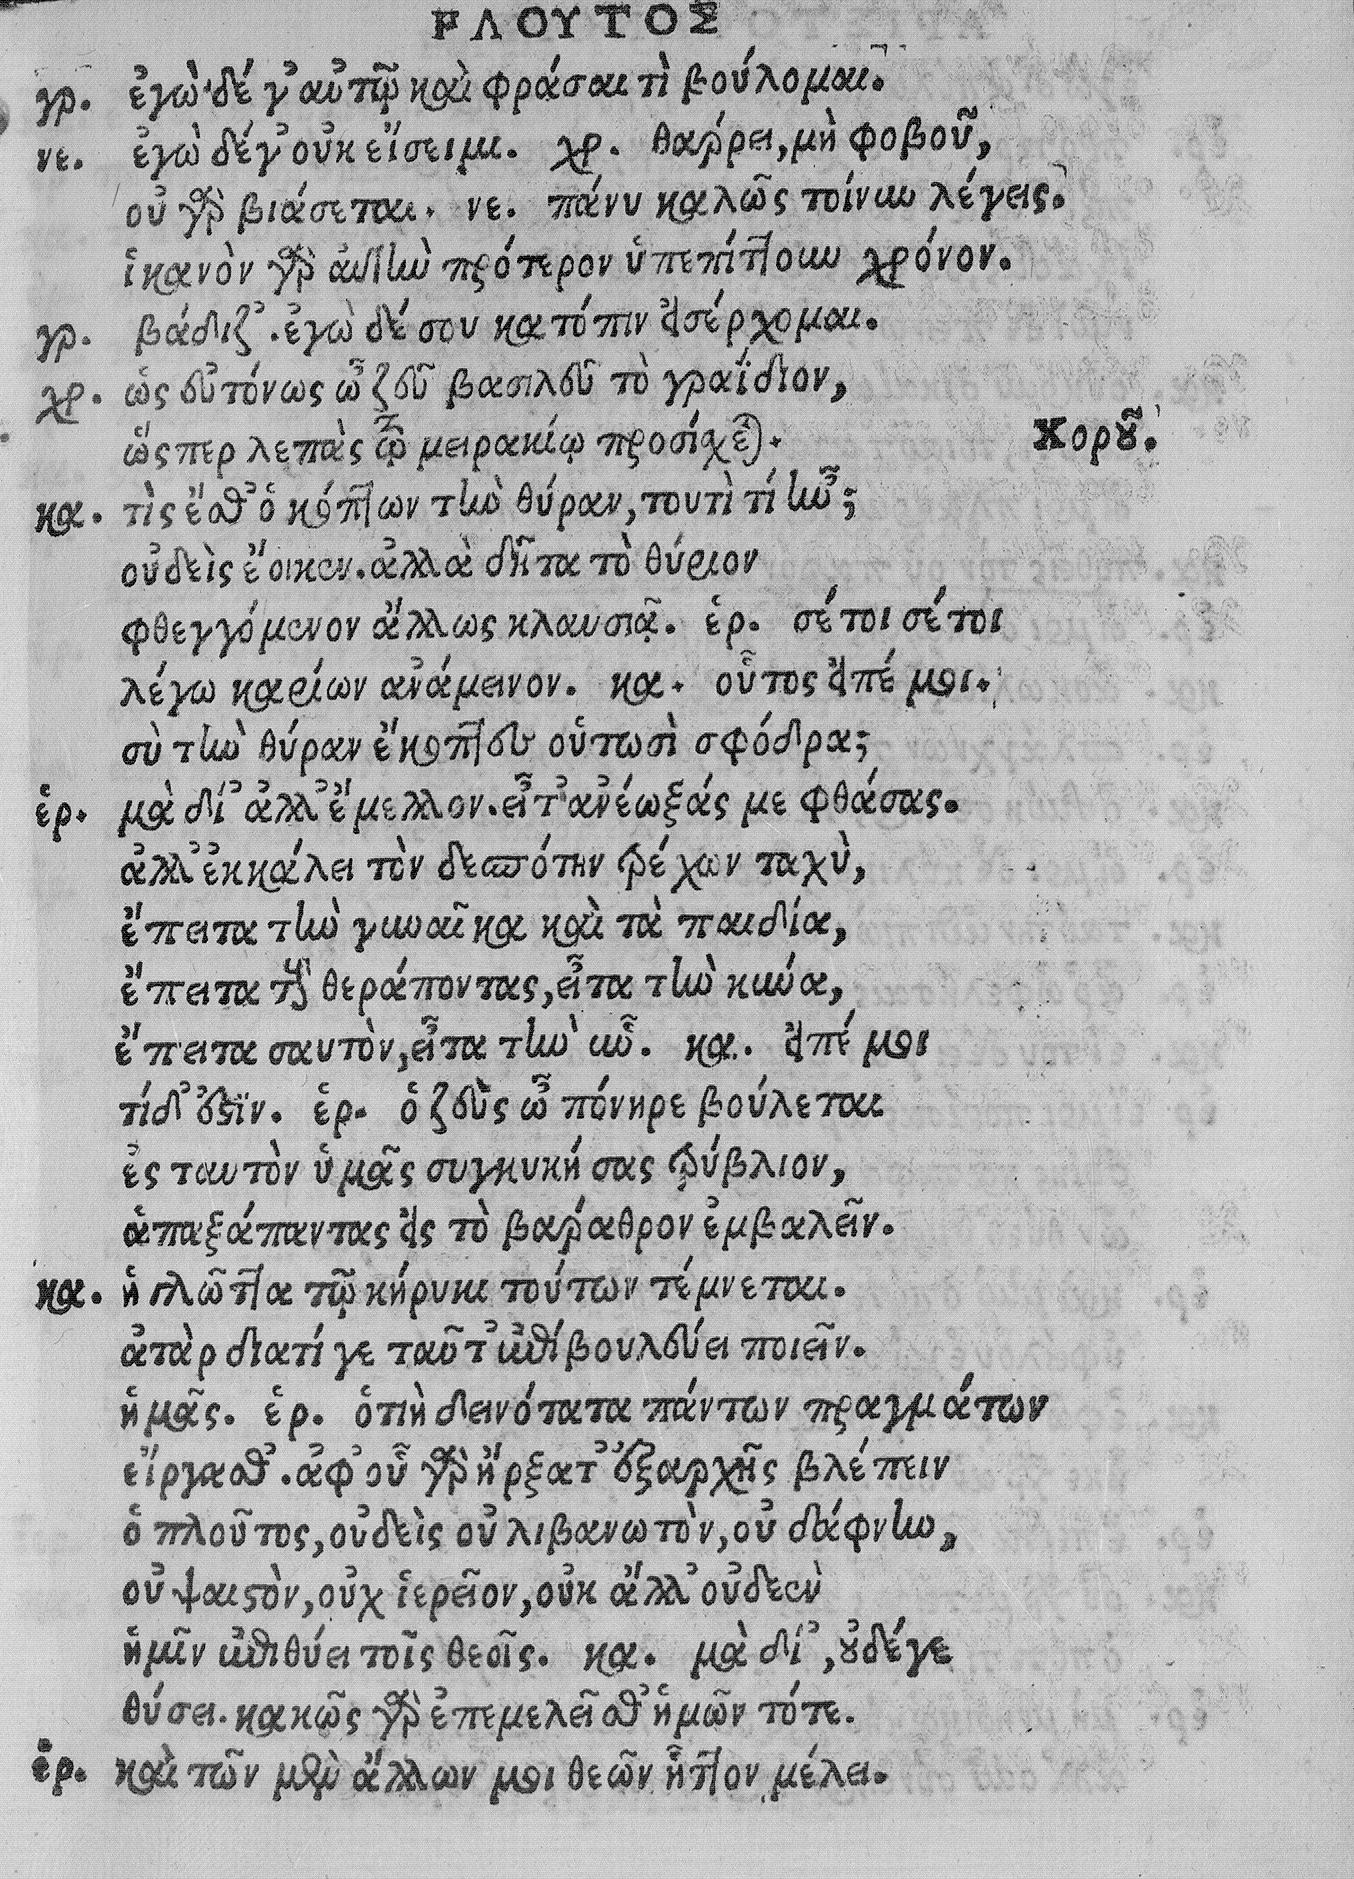 ΡΛΟΥΤΟΣ
γρ. ἐγὼ δέ γ' αὐτῷ καὶ φράσαι τὶ βούλομαι.
νε. ἐγὼ δέγ' οὐκ εἴσειμι. χρ. θαῤῥει, μὴ φοβοῦ,
οὐ γὰρ βιάσεται. νε. πάνυ καλῶς τοίνυν λέγεις.
ἱκανὸν γὰρ ἀυτὴν πρότερον ὑπεπίττουν χρόνον.
γρ. βάδιζ'. ἐγὼ δέ σου κατόπιν εἰσέρχομαι.
χρ. ὡς εὐτόνως ὦ ζεῦ βασιλεῦ τὸ γραΐδιον,
ὥσπερ λεπὰς τῷ μειρακίῳ προσίχεται. Χοροῦ.
κα. τὶς ἔσθ' ὁ κόπτων τὴν θύραν, τουτὶ τί ἦν;
οὐδεὶς ἔοικεν. ἀλλὰ δῆτα τὸ θύριον
φθεγγόμενον ἄλλως κλαυσιᾷ. ἑρ. σέ τοι σέ τοι
λέγω καρίων ἀνάμεινον. κα. οὗτος εἰπέ μοι.
σὺ τὴν θύραν ἔκοπτες οὑτωσὶ σφόδρα;
ἑρ. μὰ δί' ἀλλ' ἔμελλον. εἶτ' ἀνέωξάς με φθάσας.
ἀλλ' ἐκκάλει τὸν δεσπότην τρέχων ταχὺ,
ἔπειτα τὴν γυναῖκα καὶ τὰ παιδία,
ἔπειτα τοὺς θεράποντας, εἶτα τὴν κύνα,
ἔπειτα σαυτὸν, εἶτα τὴν ὗν. κα. εἰπέ μοι
τίδ' ἐστΐν. ἑρ. ὁ ζεὺς ὦ πόνηρε βούλεται
ἐς ταυτὸν ὑμᾶς συγκυκήσας τρύβλιον,
ἁπαξάπαντας εἰς τὸ βάραθρον ἐμβαλεῖν.
κα. ἡ γλῶττα τῷ κήρυκι τούτων τέμνεται.
ἀτὰρ διατί γε ταῦτ' ἐπιβουλεύει ποιεῖν.
ἡμᾶς. ἑρ. ὁτιὴ δεινότατα πάντων πραγμάτων
εἴργασθ'. ἀφ' οὗ γὰρ ἤρξατ' ἐξαρχῆς βλέπειν
ὁ πλοῦτος, οὐδεὶς οὐ λιβανωτὸν, οὐ δάφνην,
οὐ ψαιστὸν, οὐχ ἱερεῖον, οὐκ ἄλλ' οὐδεὲν
ἡμῖν ἐπιθύει τοῖς θεοῖς. κα. μὰ δί', οὐδέγε
θύσει. κακῶς γὰρ ἐπεμελεῖσθ' ἡμῶν τότε.
ἑρ. καὶ τῶν μὲν ἄλλων μοι θεῶν ἧττον μέλει.